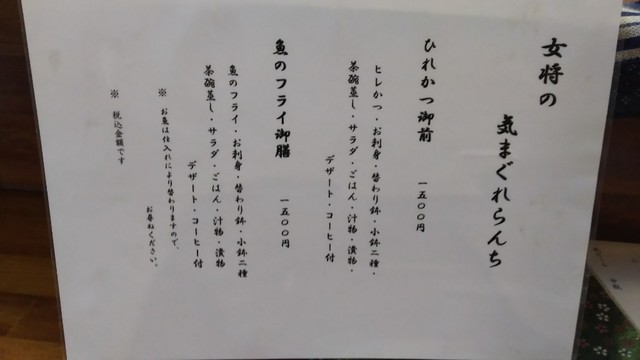 女将の
気まぐれらんち
ひれかつ御前 一五〇〇円
ヒレかつ・お刺身・替わり鉢・小鉢二種・
茶碗蒸し・サラダ・ごはん・汁物・漬物・
デザート・コーヒー付
魚のフライ御膳 一五〇〇円
魚のフライ・お刺身・替わり鉢・小鉢二種
茶碗蒸し・サラダ・ごはん・汁物・漬物
デザート・コーヒー付
※ お魚は仕入れにより替わりますので、
お尋ねください。
※ 税込金額です